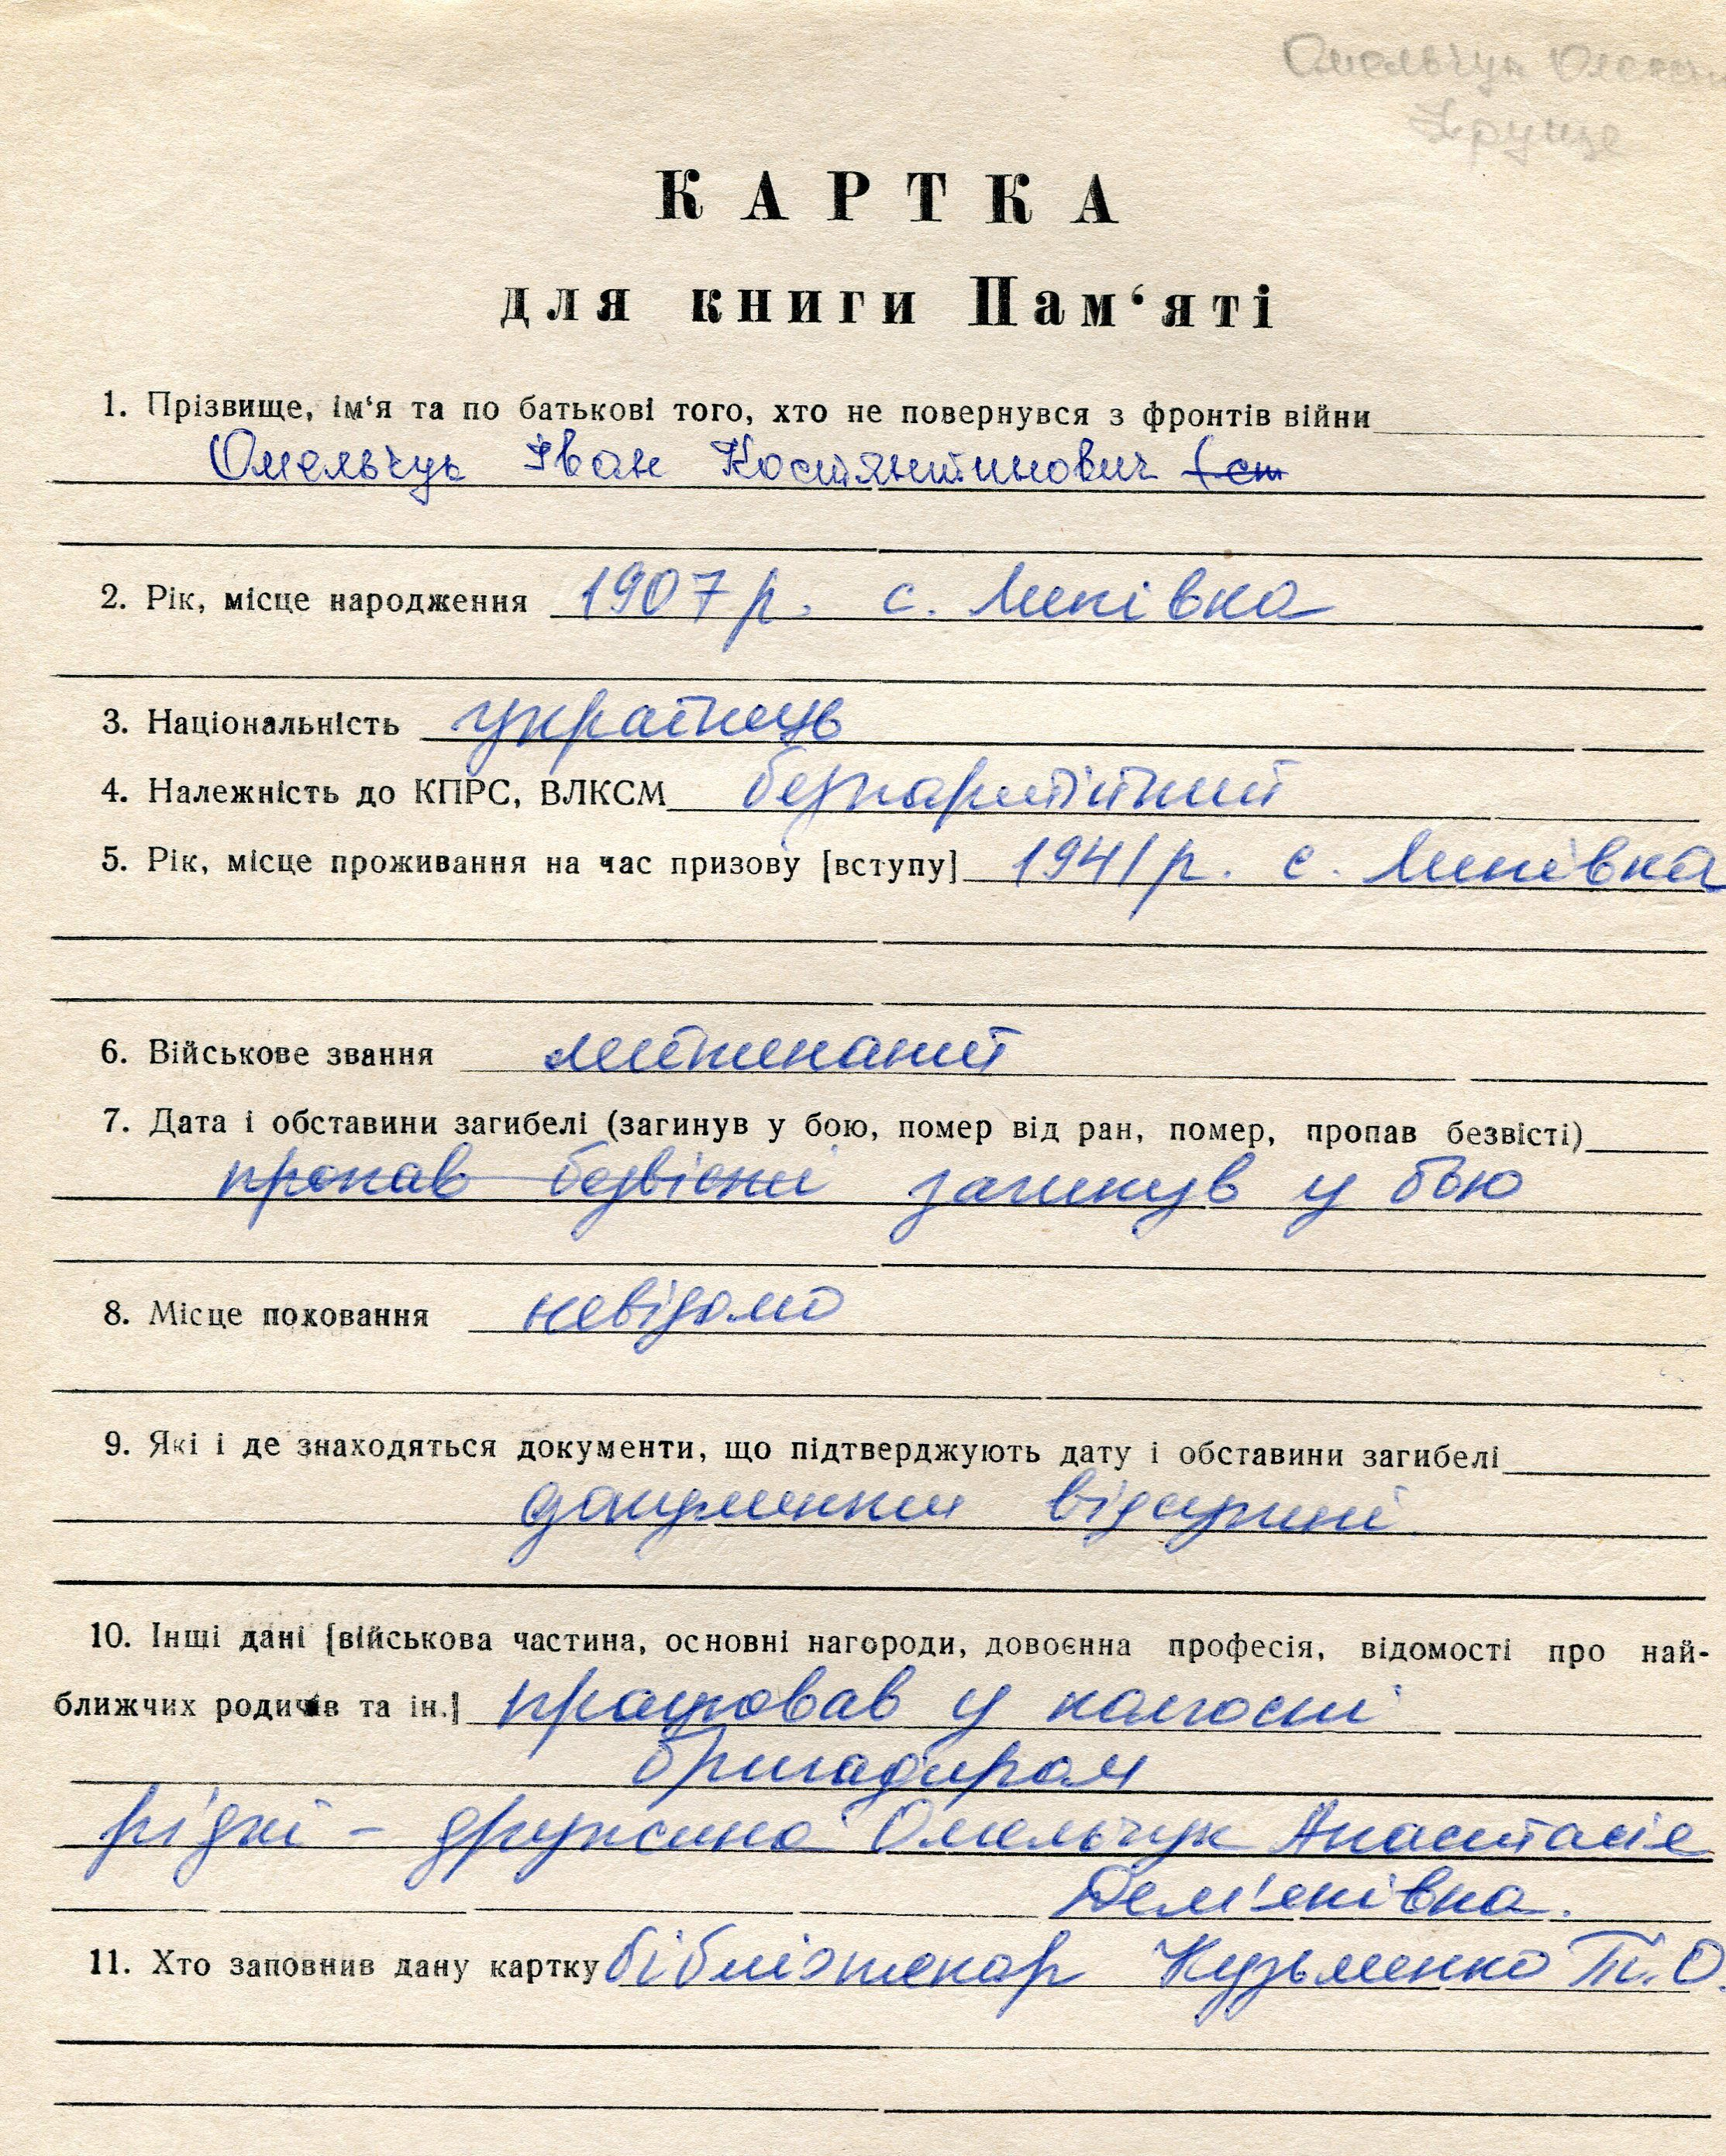 Омельчук
КАРТКА
для книги Пам‘яті
1. Прізвище, ім‘я та по батькові того, хто не повернувся з фронтів війни
Омельчук Іван Костянтинович (ст
2. Рік, місце народження 1907 р. с. Липівка
3. Національність українець
4. Належність до КПРС, ВЛКСМ безпартійний
5. Рік, місце проживання на час призову [вступу] 1941 р. с. Липівка
6. Військове звання лейтинант
7. Дата і обставини загибелі (загинув у бою, помер від ран, помер, пропав безвісті)
пропав безвісти загинув у бою
8. Місце поховання невідомо
9. Які і де знаходяться документи, що підтверджують дату і обставини загибелі
документи відсутні
10. Інщі дані [військова частина, основні нагороди, довоєнна професія, відомості про най-
ближчих родичів та ін.] працював у колгоспі
бригадиром
рідні - дружина Омельчук Анастасіє
Дем'янівна.
11. Хто заповнив дану картку бібліотекар Кузьменко Т.О.